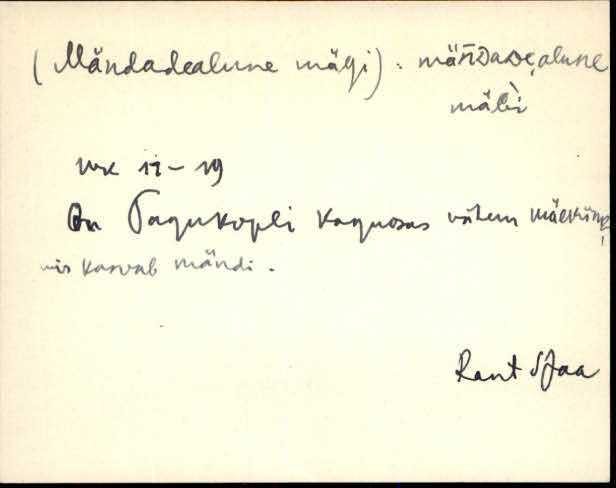 (Mändadealune mägi): männᴅaᴅealune
mäGi
wk 11-19
On Tagukopli kaguosas vähem mäekünk,
mis kasvab mändi.
Rant Jaa